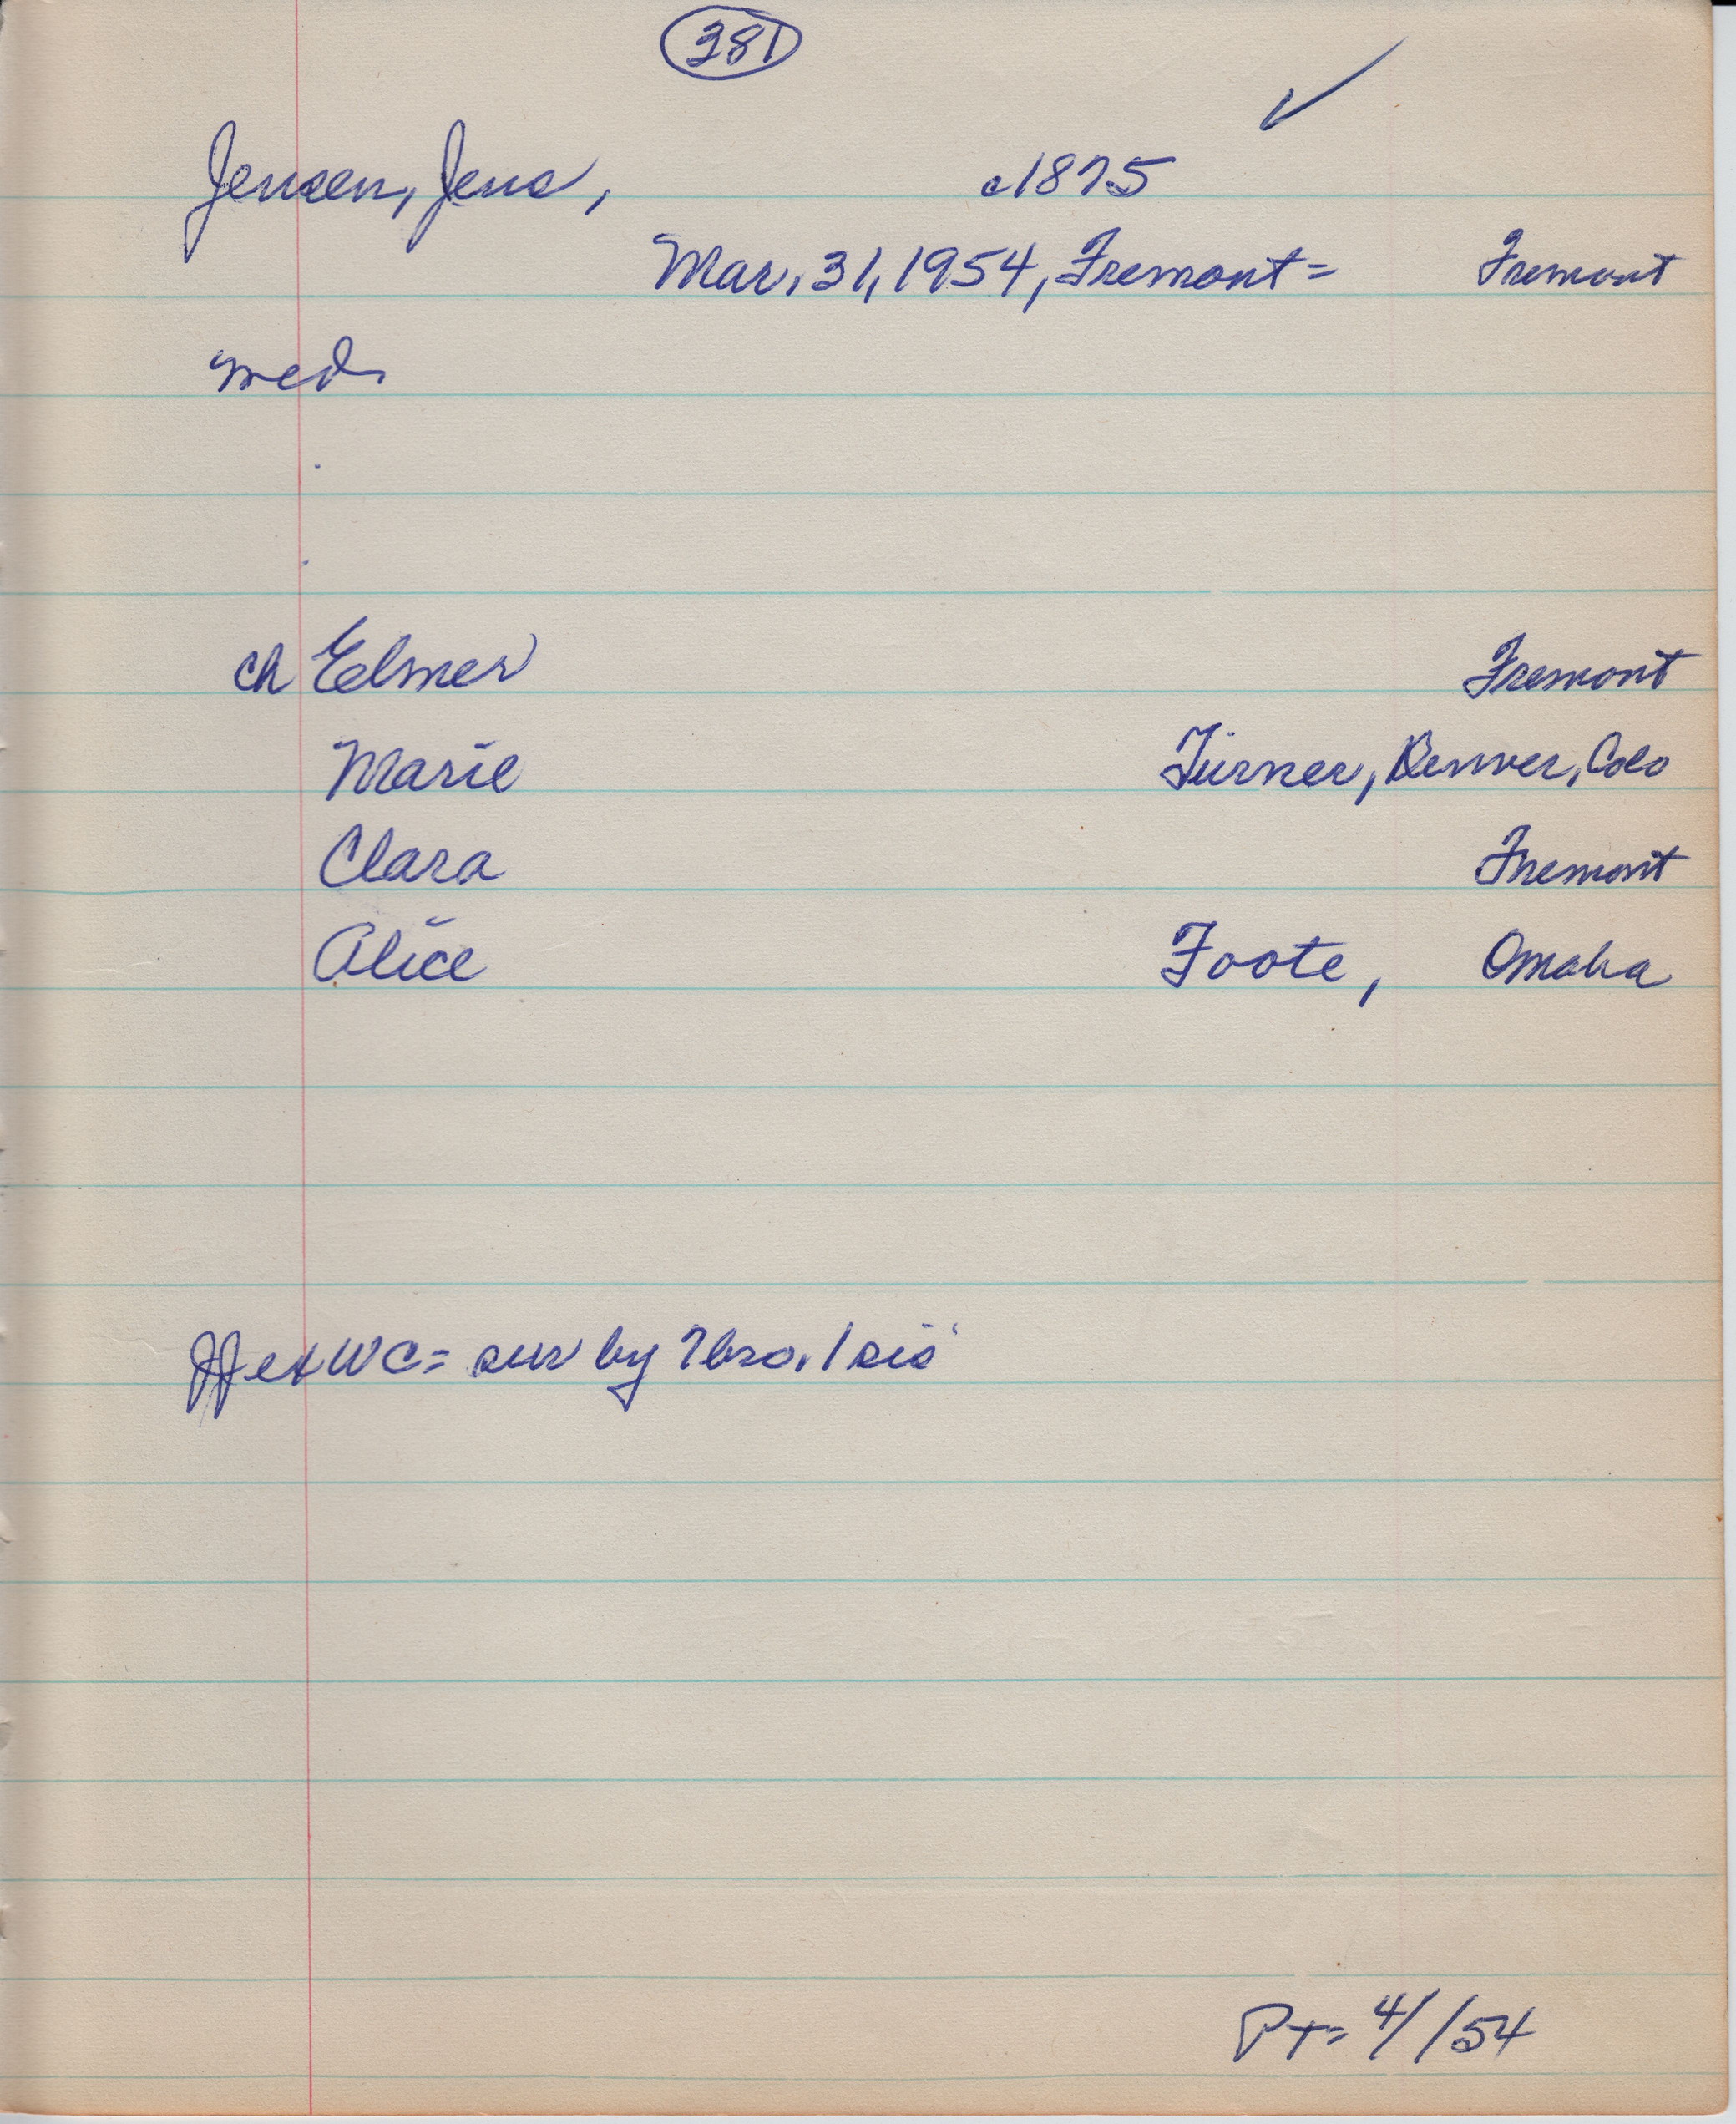 381
✓
Jensen, Jens, c1875
Mar. 31, 1954, Fremont = Fremont
med.
ch Elmer Fremont
Marie Turner, Denver, Colo
Clara Fremont
Alice Foote, Omaha
WC = sur by 7 bro. 1 sis
PT = 4/ /54